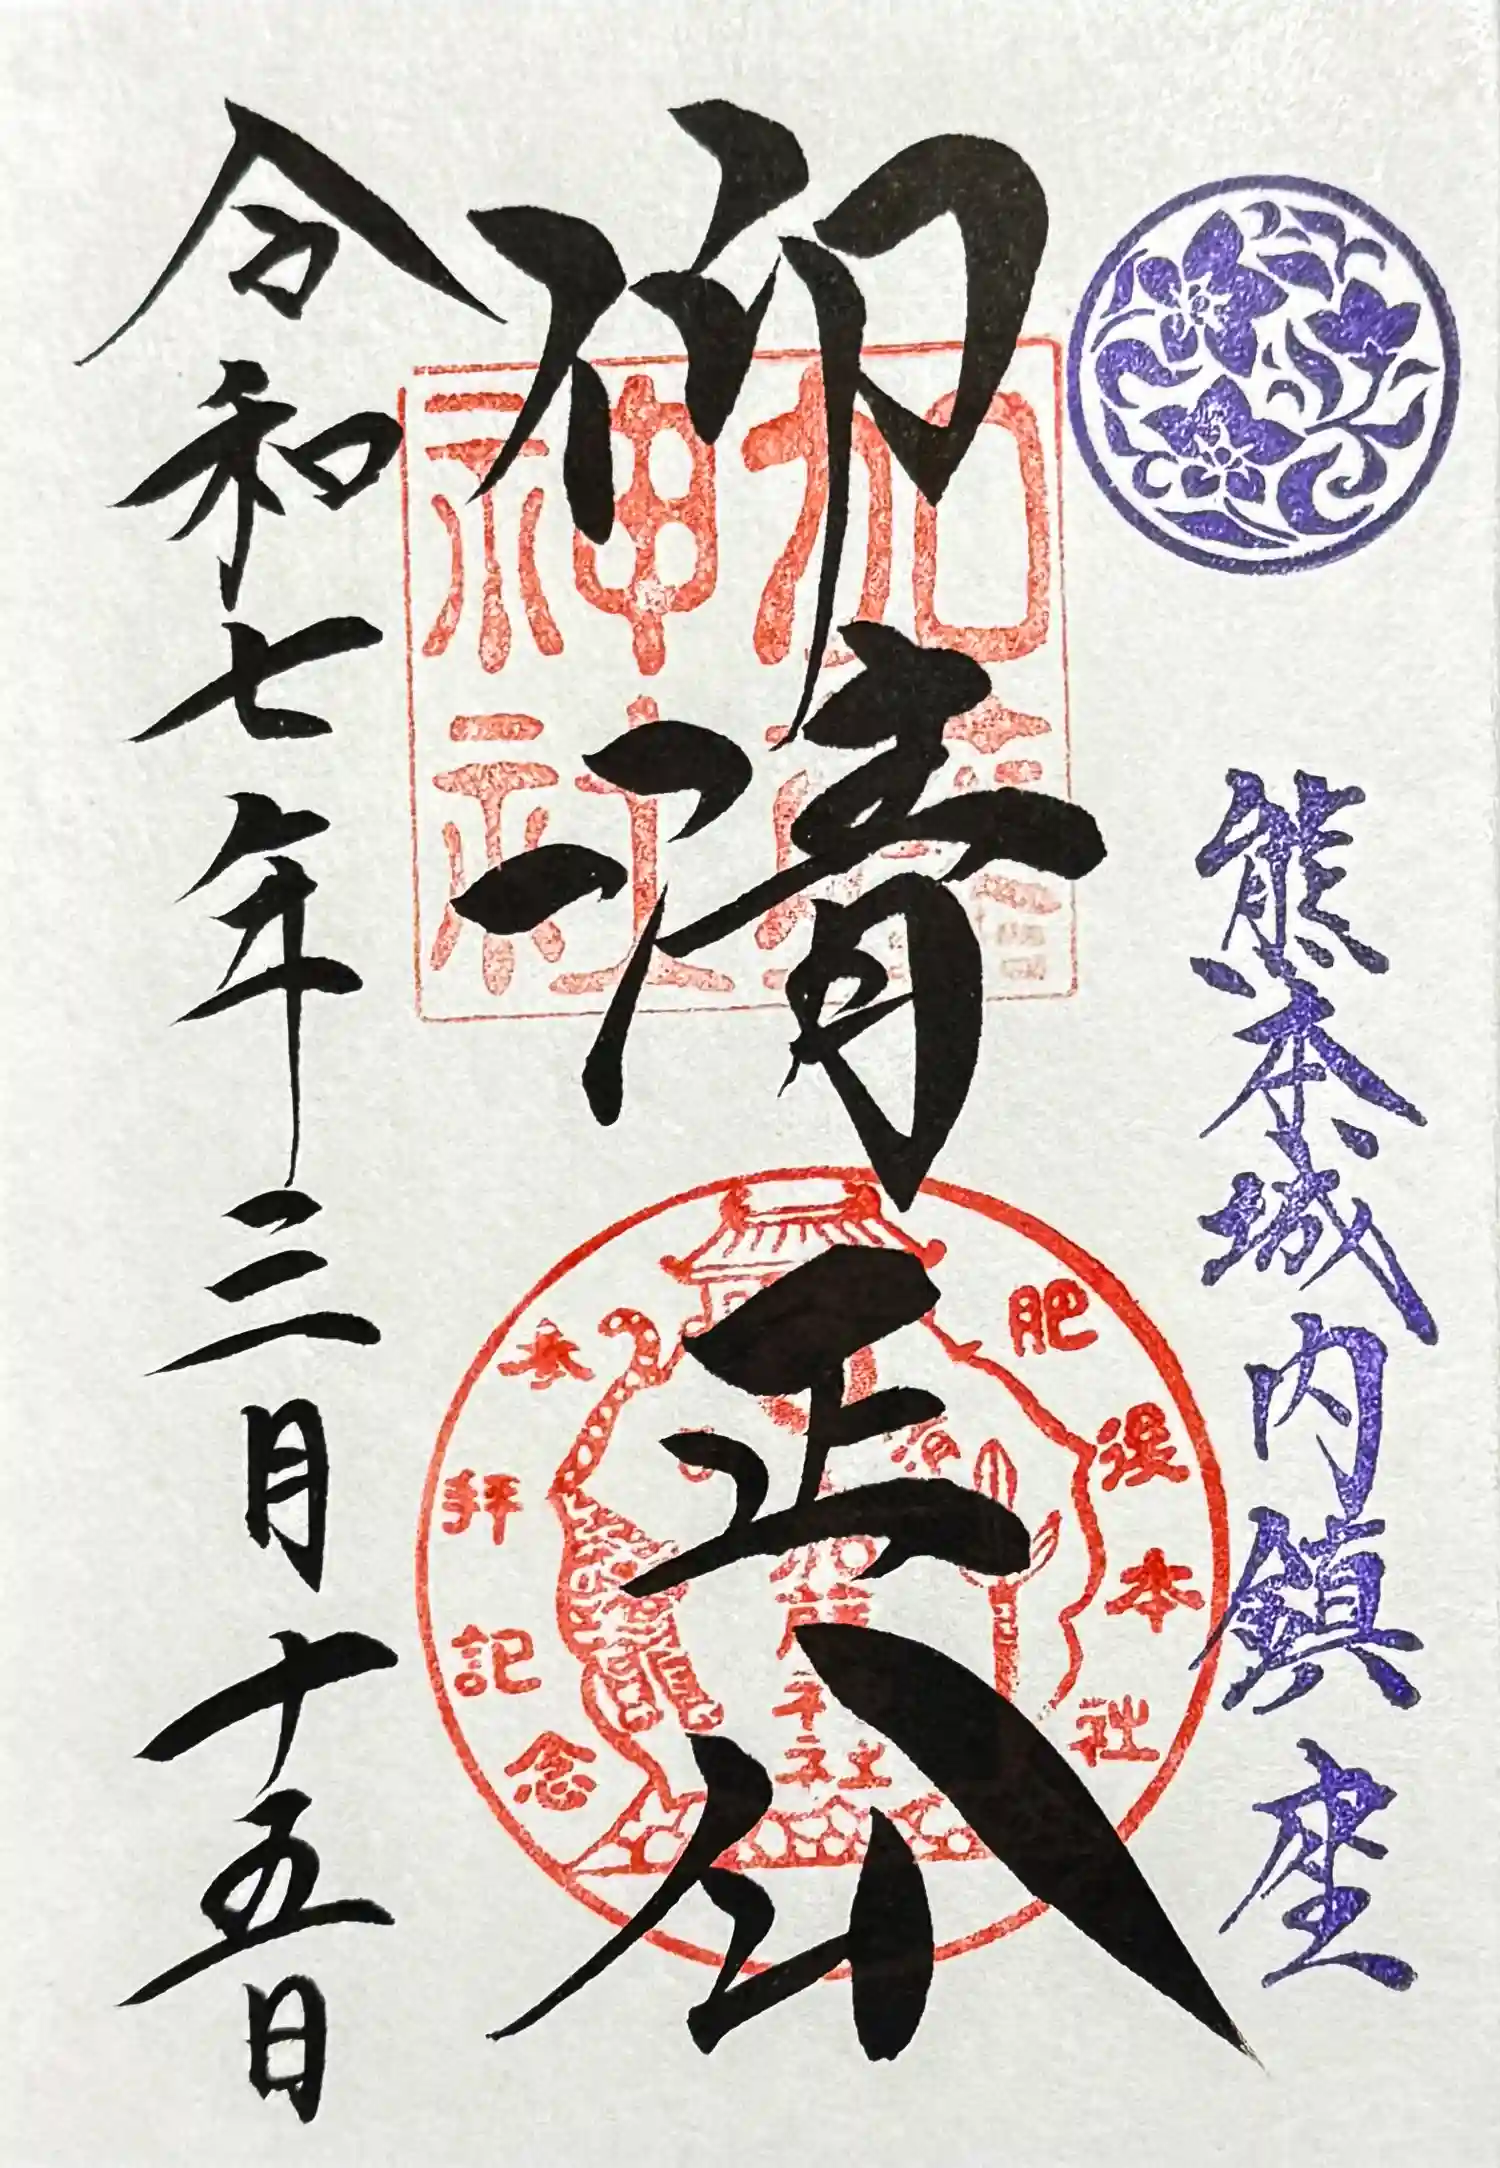 熊本城内鎮座
仰清正公
加藤
神社
肥後本社
参拝記念
加藤神社
令和七年三月十五日